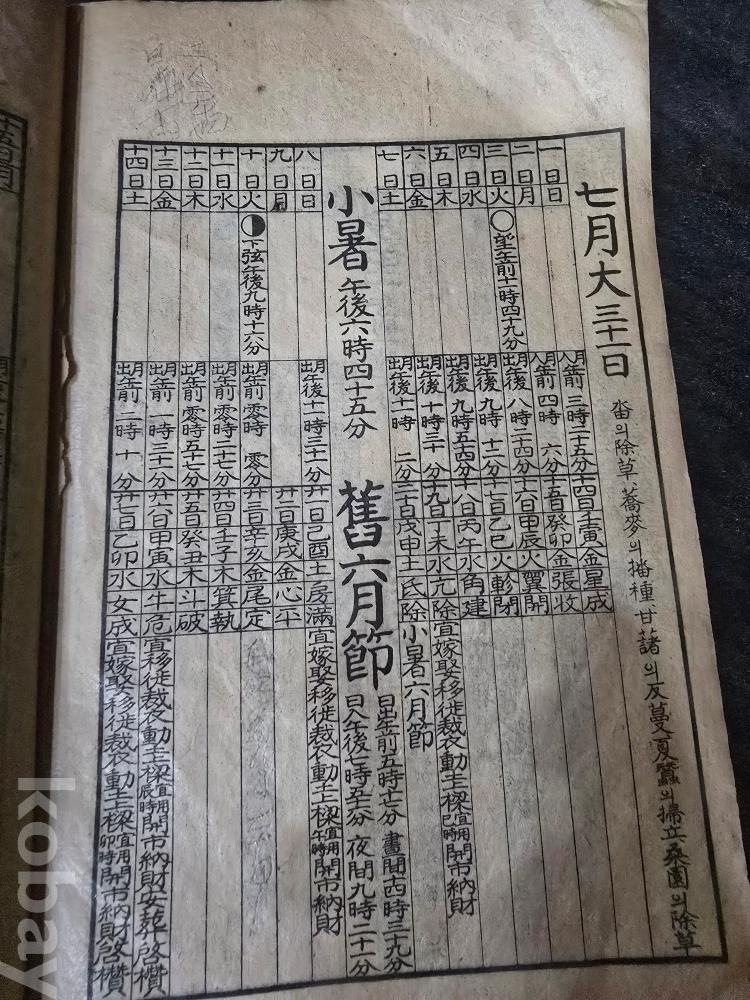 七月大三十一日
畓의除草、蕎麥의播種甘藷의反蔓夏蠶의掃立桑園의除草
一日日 月入午前 三時二十五分 十四日壬寅金星成
二日月 月入午前 四時 六分 十五日癸卯金張收
三日火 ○望午前十一時四十九分 月出午後 八時二十四分 十六日甲辰火翼開
四日水 月出午後 九時 十二分 十七日乙巳火軫閉
五日木 月出午後 九時五十四分 十八日丙午水角建
六日金 月出午後 十時三十 分 十九日丁未水亢除 宜嫁娶移徙裁衣動土上樑宜用巳時開市納財
七日土 月出午後十一時 二分 二十日戊申土氐除 小暑六月節
小暑 午後六時四十五分 舊六月節 日出午前五時十七分 晝間十四時三十九分
日入午後七時五十六分 夜間九時二十一分
八日日 月出午後十一時三十一分 廿一日己酉土房滿 宜嫁娶移徙裁衣動土上樑宜用午時開市納財
九日月 廿二日庚戌金心平
十日火 ◑下弦午後九時十六分 月出午前 零時 零分 廿三日辛亥金尾定
十一日水 月出午前 零時二十七分 廿四日壬子木箕執
十二日木 月出午前 零時五十七分 廿五日癸丑木斗破
十三日金 月出午前 一時三十分 廿六日甲寅水牛危 宜移徙裁衣動土上樑宜用辰時開市納財安葬啓欑
十四日土 月出午前 二時 十 分 廿七日乙卯水女成 宜嫁娶移徙裁衣動土上樑宜用卯時開市納財啓欑
kobay